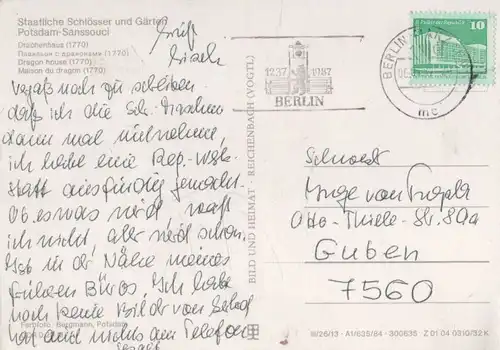 Staatliche Schlösser und Gärten
Potsdam-Sanssouci
Drachenhaus (1770)
Павильон с драконами (1770)
Dragon house (1770)
Maison du dragon (1770)
Gruß
vergaß noch zu schreiben
daß ich die
dann mal mitnehme,
ich habe eine Rep.-werk-
statt ausfindig gemacht.
Ob es was wird, weiß
ich nicht, aber wird schon.
Ist in der Nähe meines
früheren Büros. Ich habe
noch keine Bilder von
hat auch nichts am Telefon
gesagt
Fotofoto: Bergmann, Potsdam
BILD UND HEIMAT · REICHENBACH (VOGTL)
1237 1987
BERLIN
BERLIN
10
Inge von
Otto-Thiele-Str. 89a
Guben
7560
III/26/13 · A1/635/84 · 300635 Z 01 04 0310/32 K